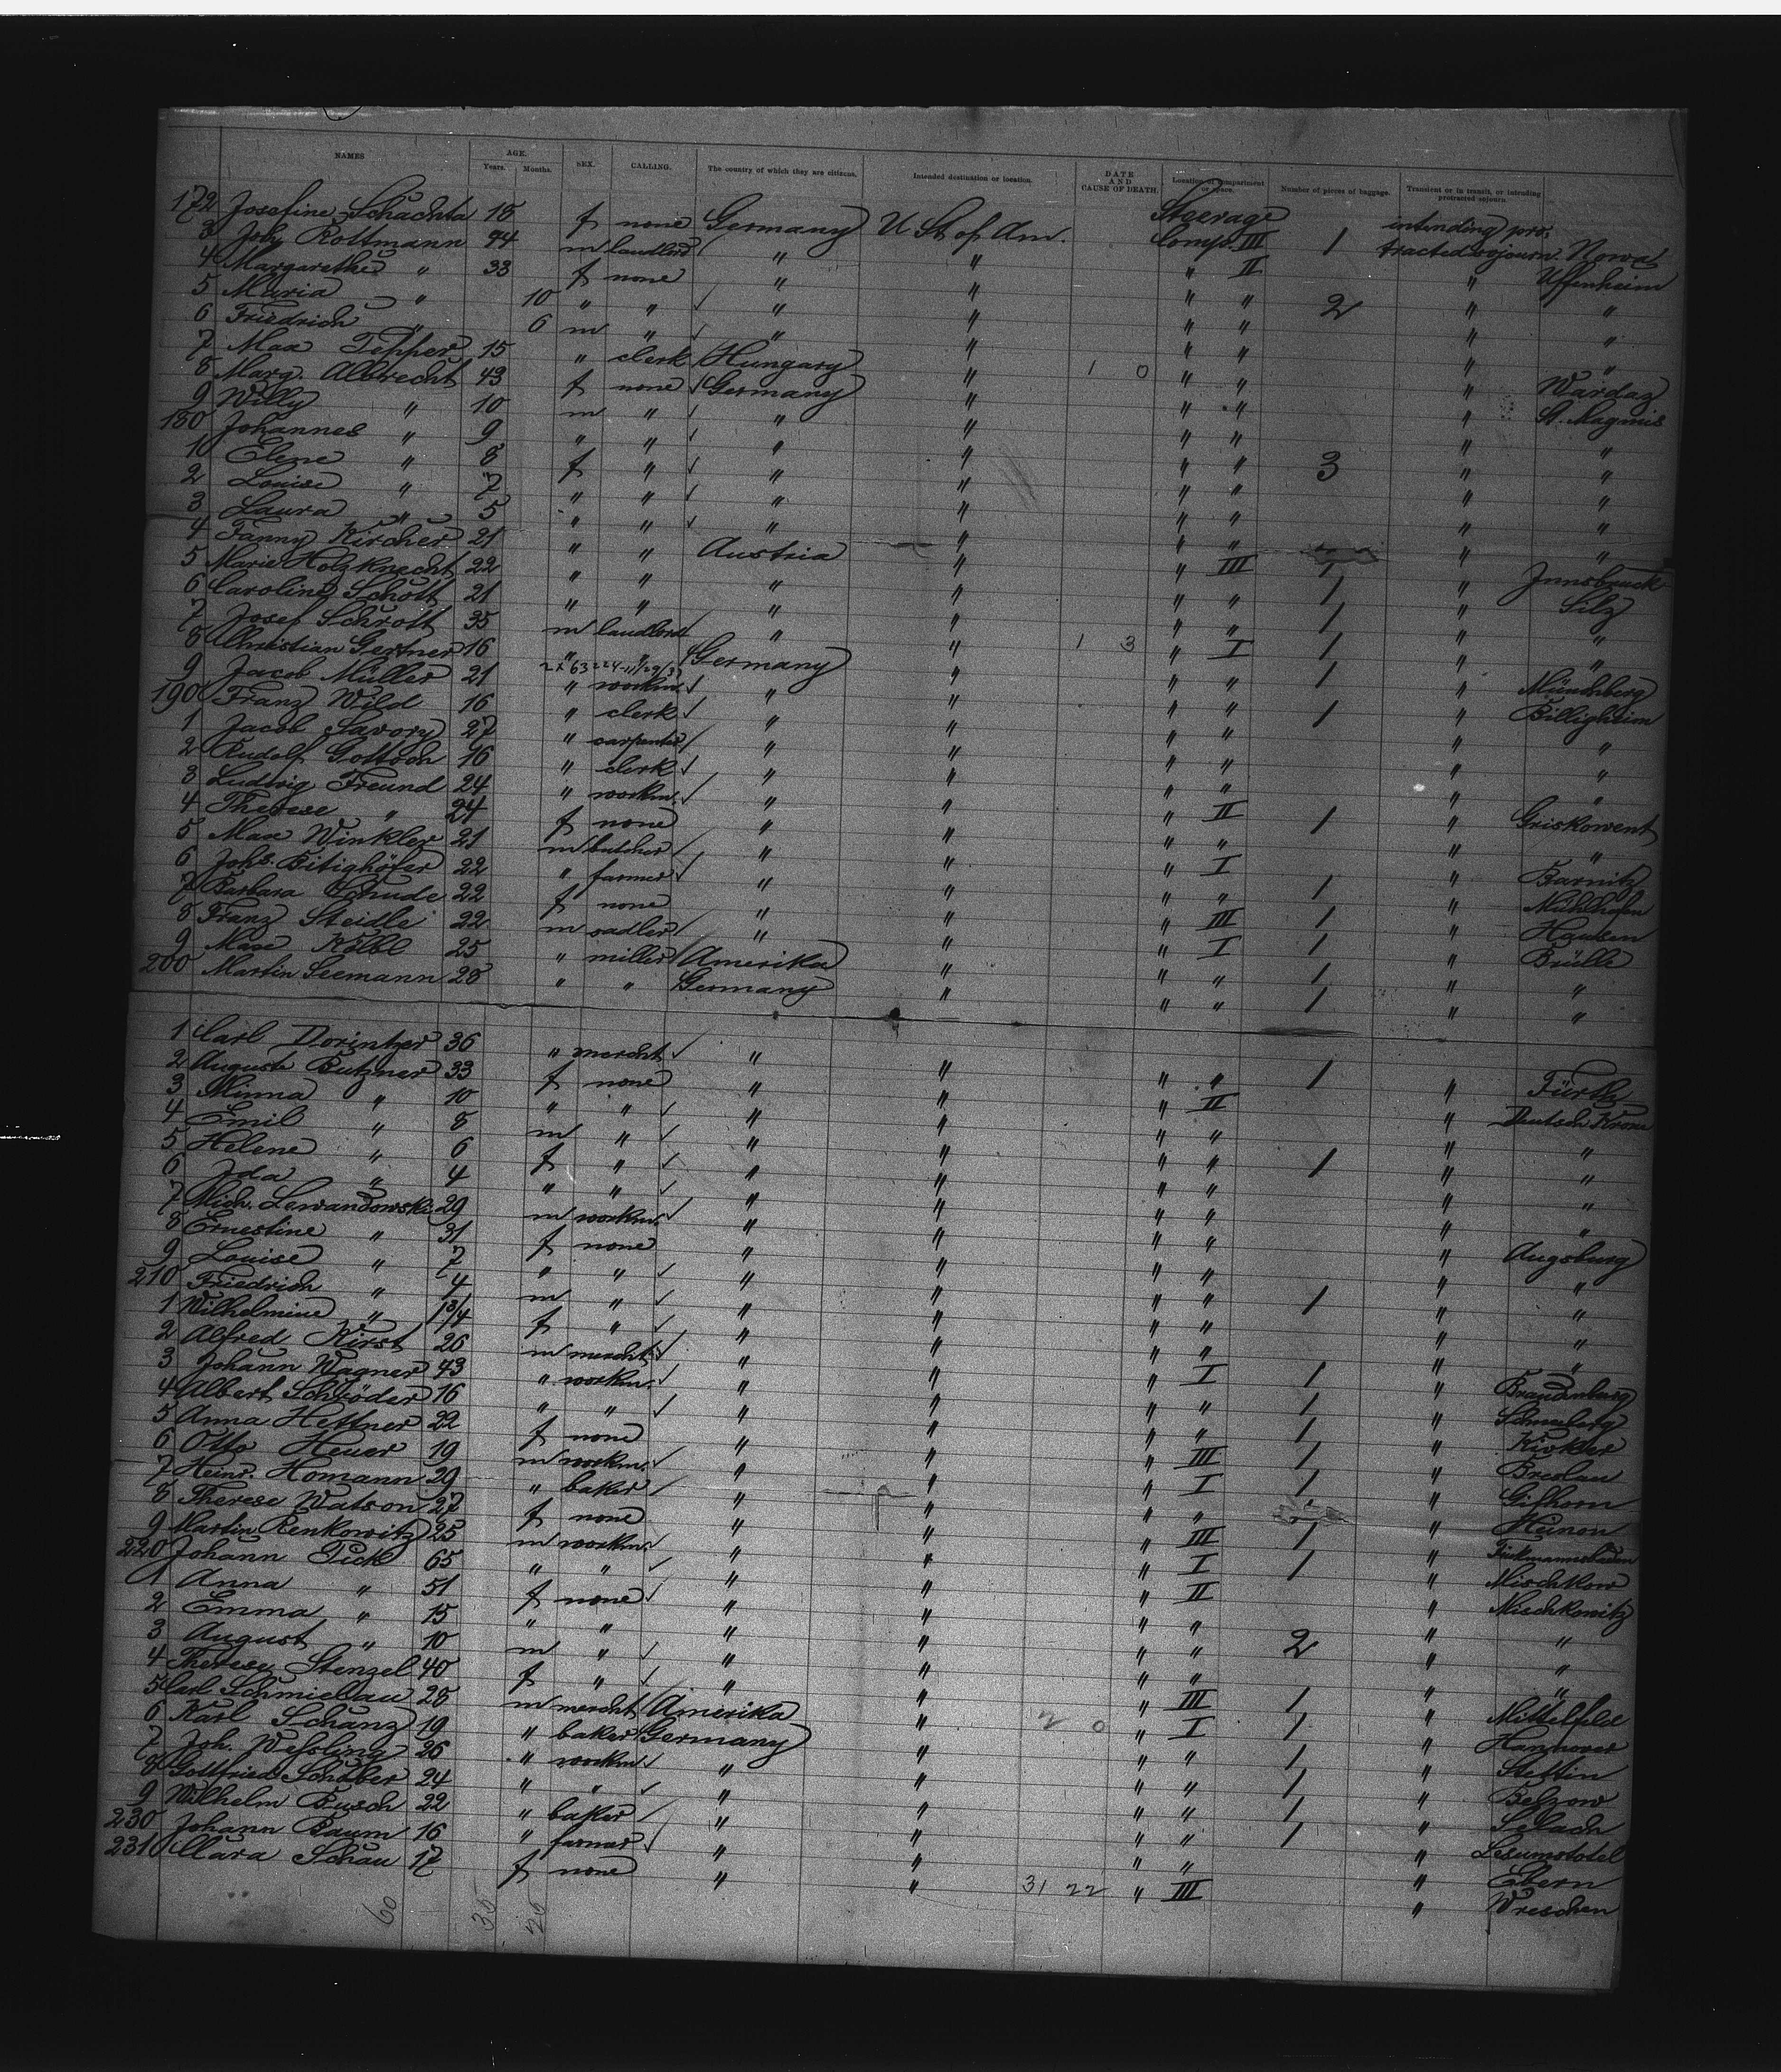 NAMES AGE. Years. Months. SEX. CALLING. The country of which they are citizens. Intended destination or location. DATE AND CAUSE OF DEATH. Location of compartment or space. Number of pieces of baggage. Transient or in transit, or intending protracted sojourn.
172 Josefine Schachta 18 f none Germany U St of Am. Steerage Comp. III 1 intending protracted sojourn. Nowa
3 Joh Rottmann 44 m landlord " " " II " Uffenheim
4 Margarethe " 33 f none " " " " 2 " "
5 Maria " 10 " " " " " " " "
6 Friedrich " 6 m " " " " " " "
7 Max Tepper 15 " clerk Hungary " 1 0 " " "
8 Marg. Albrecht 43 f none Germany " " " " St. Magnus
9 Willy " 10 m " " " " " " "
180 Johannes " 9 " " " " " " 3 " "
10 Elene " 8 f " " " " " " "
2 Louise " 7 " " " " " " " "
3 Laura " 5 " " " " " " " "
4 Fanny Kircher 21 " " Austria " " III 1 " Innsbruck
5 Marie Holzknecht 22 " " " " " " 1 " Silz
6 Caroline Schött 21 " " " " " " 1 " "
7 Josef Schrott 35 m landlord " " 1 3 " I 1 " "
8 Christian Gertner 16 " " Germany " " " 1 " Münchberg
9 Jacob Müller 21 " workm. " " " " 1 " Billigheim
190 Franz Wild 16 " clerk " " " " " "
1 Jacob Savory 27 " carpenter " " " " " "
2 Rudolf 16 " clerk " " " " "
3 Ludwig Freund 24 " workm. " " " II 1 "
4 Therese " 24 f none " " " " " "
5 Max Winkler 21 m butcher " " " I " Barnitz
6 Johs. Bitighöfer 22 " farmer " " " " 1 " Mühlhofen
7 Barbara 22 f none " " " III 1 " Hausen
8 Franz Steidle 22 m sadler " " " I 1 " Brülle
9 Max Kölbl 25 " miller Amerika " " " 1 " "
200 Martin Seemann 28 " " Germany " " " 1 " "
1 Carl Dorintzer 36 " mercht " " " " 1 " Fürth
2 Auguste Butzner 33 f none " " " II " Deutsch Krone
3 Minna " 10 " " " " " " " "
4 Emil " 8 m " " " " " 1 " "
5 Helene " 6 f " " " " " " "
6 Ida " 4 " " " " " " " "
7 Mich. Lewandowski 29 m workm. " " " " " Augsburg
8 Ernestine " 31 f none " " " " " "
9 Louise " 7 " " " " " " 1 " "
210 Friedrich " 4 m " " " " " " "
1 Wilhelmine " 1 3/4 f " " " " " " "
2 Alfred Kirst 26 m mercht. " " " I 1 " Brandenburg
3 Johann Wagner 43 " workm. " " " " 1 " Schneeberg
4 Albert Schröder 16 " " " " " " 1 "
5 Anna Hettner 22 f none " " " III 1 " Breslau
6 Otto Heuer 19 m workm. " " " I 1 " Gifhorn
7 Heinr. Homann 29 " baker " " " " 1 "
8 Therese Watson 27 f none " " " III 1 "
9 Martin Renkowitz 25 m workm. " " " I 1 " Mischkow
220 Johann Pick 65 " " " " " II " Mischkowitz
1 Anna " 51 f none " " " " " "
2 Emma " 15 " " " " " " 2 " "
3 August " 10 m " " " " " " "
4 Therese Stenzel 40 f " " " " III 1 " Mittelfelde
5 Carl Schmiellau 28 m mercht Amerika " 2 0 " I 1 " Hannover
6 Karl Schanz 19 " baker Germany " " " 1 " Stettin
7 Joh. Weßling 26 " workm. " " " " 1 " Belzow
8 Gottfried Schober 24 " " " " " " 1 " Selach
9 Wilhelm Busch 22 " baker " " " " 1 " Lesumstotel
230 Johann Baum 16 " farmer " " " " " Ebern
231 Clara Schau 17 f none " " 31 22 " III " Wreschen
60 35 25